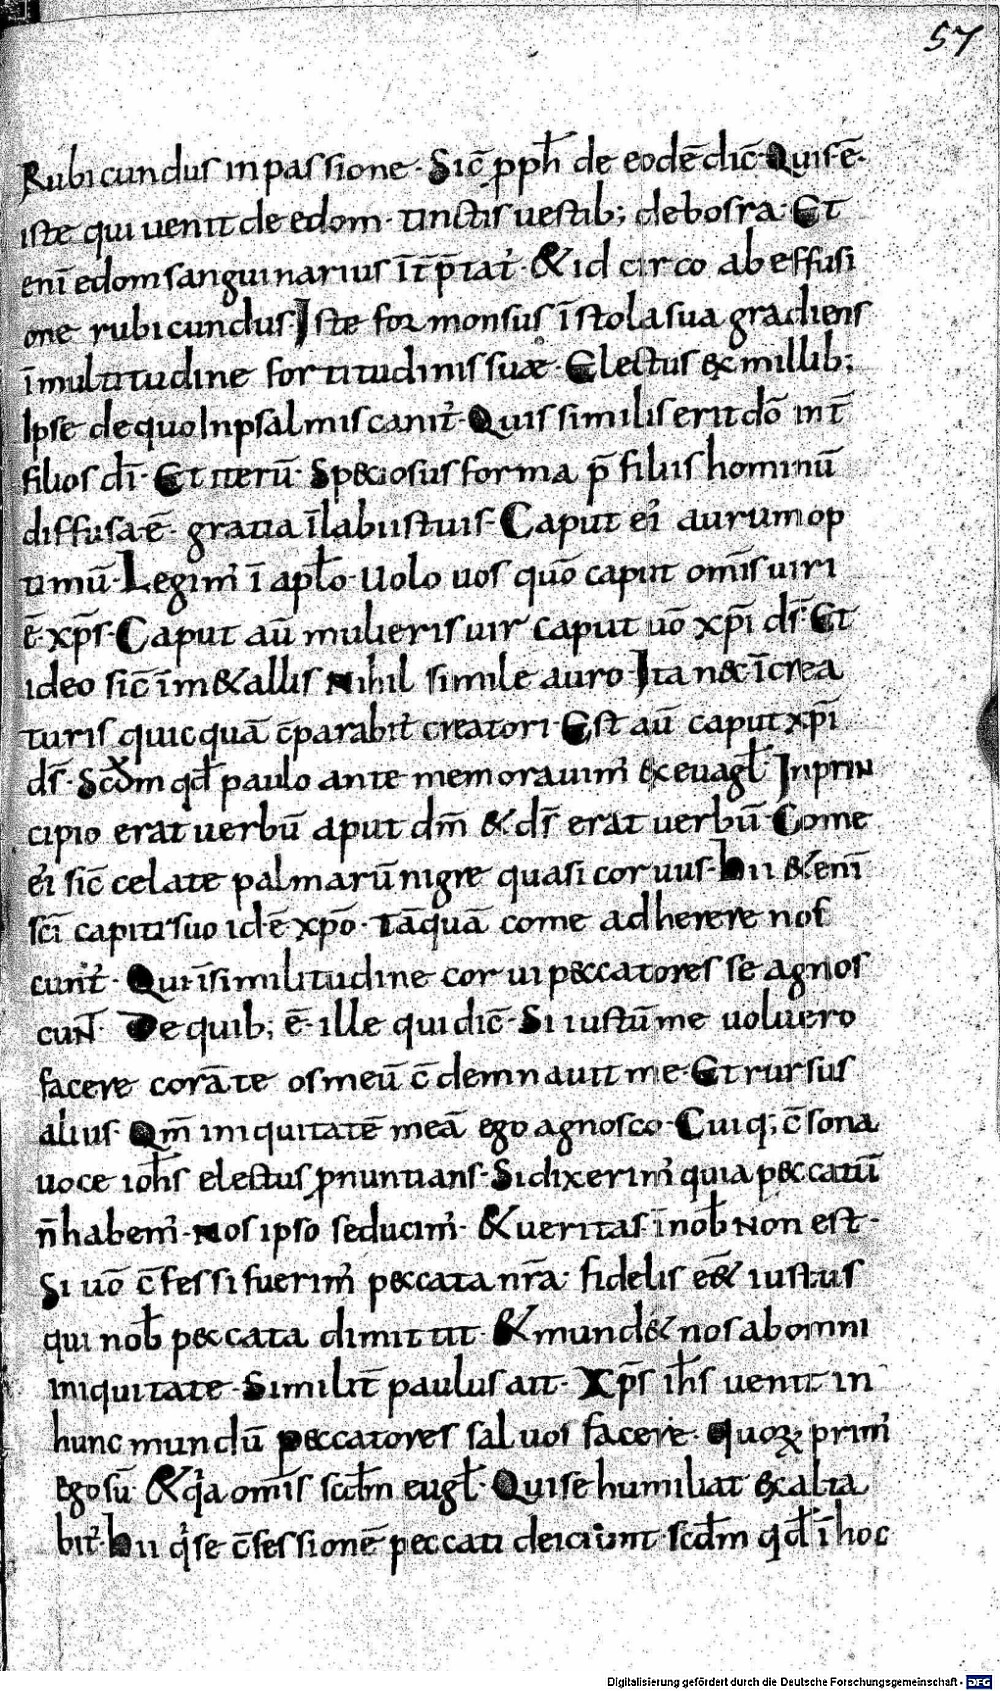 57
Rubicundus in passione · Sic̄ p̱ph̄ de eodē dic̄ · Quis · ē ·
iste qui uenit de edom · tinctis uestib; de bosra · Et
eni̅ edom sanguinarius īt̄p̄tat᷑ · & id circo ab effusi
one rubicundus · Iste formonsus ī stola sua gradiens
ī multitudine fortitudinis suæ · Electus ex millib;
Ipse de quo In psalmis canit᷑ · Quis similis erit dō int̄
filios dī · Et iterū · Speciosus forma p̄ filiis hominū
diffusa · ē · gratia ī labiis tuis · Caput ei᷒ aurum op
timū · Legim᷒ ī aptō · Uolo uos quō caput om̄is uiri
ē · xp̄s · Caput aū mulieris uir caput uō xp̄i ds̄ · Et
ideo sic̄ ī m&allis Nihil simile auro · Ita nec ī crea
turis quicquā c̄parabit᷑ creatori · Est aū caput xp̄i
ds̄ · Scd̄m qd̄ paulo ante memorauim᷒ ex euagl̄ · In prin
cipio erat uerbū aput dm̄ & ds̄ erat uerbū · Come
ei᷒ sic̄ celate palmarū nigre quasi coruus · hii & eni̅
sc̄i capiti suo id · ē xp̄o · Tāquā come adherere nos
cunt᷑ · Qui ī similitudine corui peccatores se agnos
cuN̄ · De quib; ē · ille qui dic̄ · Si iustū me uoluero
facere corā te os meū c̄demnauit me · Et rursus
alius · Qm̄ iniquitatē meā ego agnosco · Cuiq; c̄sona
uoce ioh̄s electus p̱nuntians · Si dixerim᷒ quia peccatū
n̄ habem᷒ · Nos ipso seducim᷒ · & ueritas ī nob̄ Non est ·
Si uō c̄fessi fuerim᷒ peccata nr̄a · fidelis ē & iustus
qui nob̄ peccata dimittit · & mund& nos ab omni
iniquitate · Similit̄ paulus ait · Xp̄s ih̄s uenit in
hunc mundū peccatores saluos facere · quoꝝ prim᷒
ego sū · & qͥa om̄is scd̄m eugl̄ · Qui se humiliat exalta
bit᷑ · hii qͥ se c̄fessionē peccati deiciunt scd̄m qd̄ ī hoc
Digitalisierung gefördert durch die Deutsche Forschungsgemeinschaft - DFG